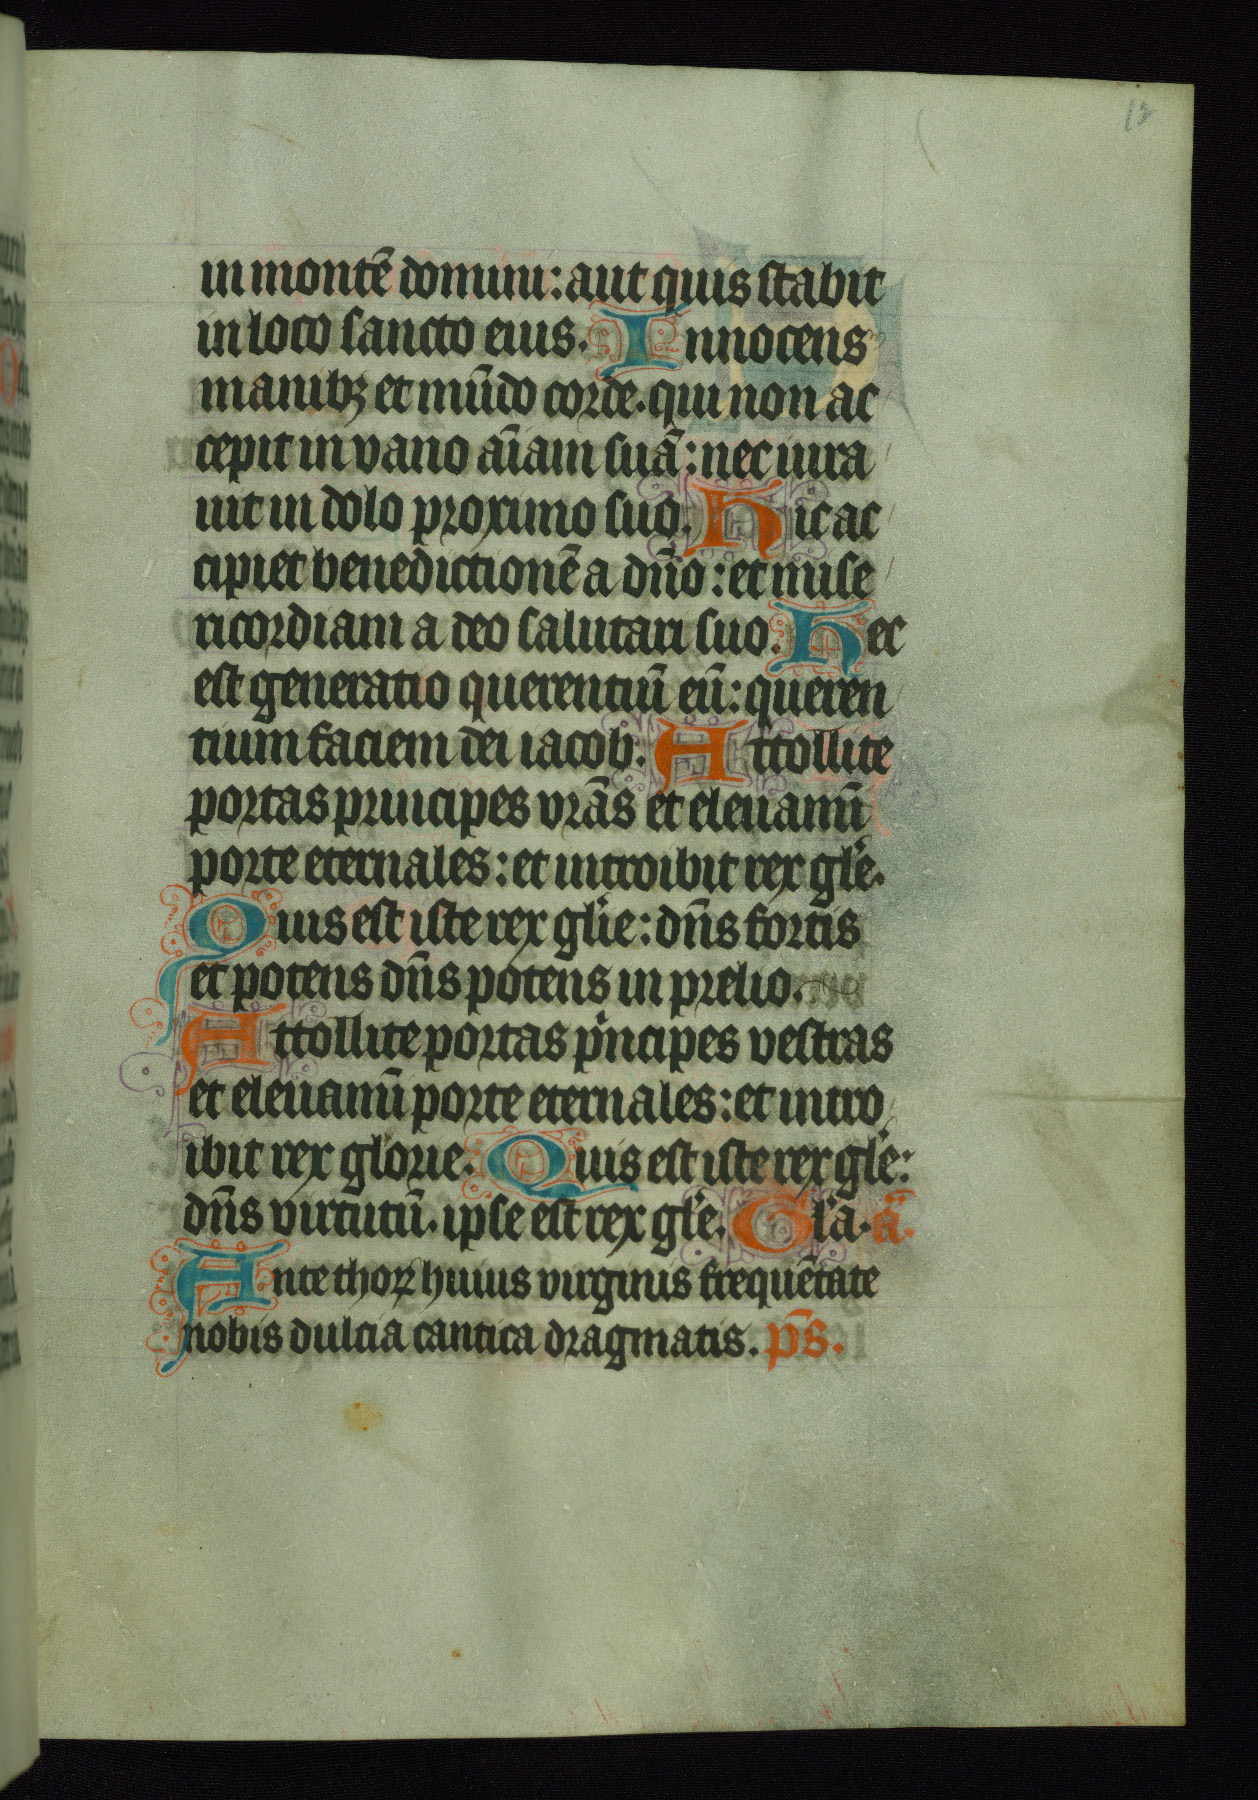 12
in montē domini: aut quis stabit
in loco sancto eius. Innocens
manibꝫ et mūdo corde. qui non ac
cepit in vano aīam suā: nec iura
uit in dolo proximo suo. Hic ac
cipiet benedictionē a dño: et mise
ricordiam a deo salutari suo. Hec
est generatio querentiū eū: queren
tium faciem dei iacob. Attollite
portas principes vrās et eleuamī
porte eternales: et introibit rex glē.
Quis est iste rex glīe: dñs fortis
et potens dñs potens in prelio.
Attollite portas pⁱncipes vestras
et eleuamī porte eternales: et intro
ibit rex glorie. Quis est iste rex glē:
dñs virtutū. ipse est rex glē. Glā. ā.
Ante thoꝝ huius virginis frequētate
nobis dulcia cantica dragmatis. p̄s.